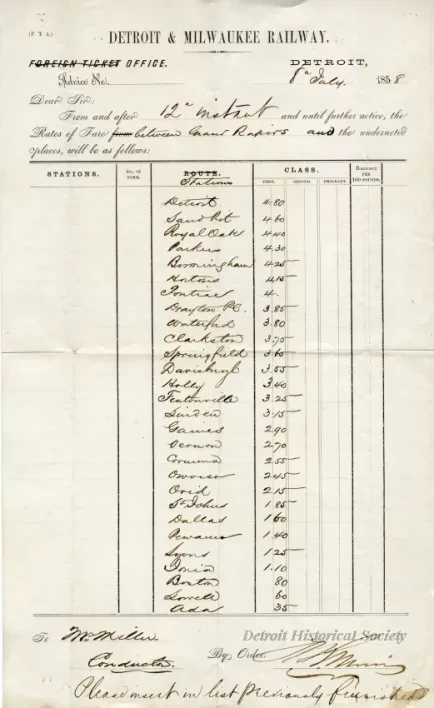 (F. T. 5.)
DETROIT & MILWAUKEE RAILWAY.
FOREIGN TICKET OFFICE.
DETROIT,
Advice No.
8th July. 1858
Dear Sir:
From and after 12th instant and until further notice, the
Rates of Fare from between Grand Rapids and the undernoted
places, will be as follows:
STATIONS. No. of ROUTE. CLASS. BAGGAGE PER 100 POUNDS.
Stations FIRST. SECOND. EMIGRANT.
Detroit 4.80
Sand Pit 4.60
Royal Oak 4.40
Parkers 4.30
Birmingham 4.25
Hortons 4.15
Pontiac 4.
Drayton Pl. 3.85
Waterford 3.80
Clarkston 3.75
Springfield 3.65
Davisburgh 3.55
Holly 3.40
Fentonville 3.25
Linden 3.15
Gaines 2.90
Vernon 2.70
Corunna 2.55
Owosso 2.45
Ovid 2.15
St Johns 1.85
Dallas 1.60
Pewamo 1.40
Lyons 1.25
Ionia 1.10
Boston 80
Lowell 60
Ada 35
Detroit Historical Society
To Mr Miller
By Order.
Conductor.
Please insert in list previously furnished